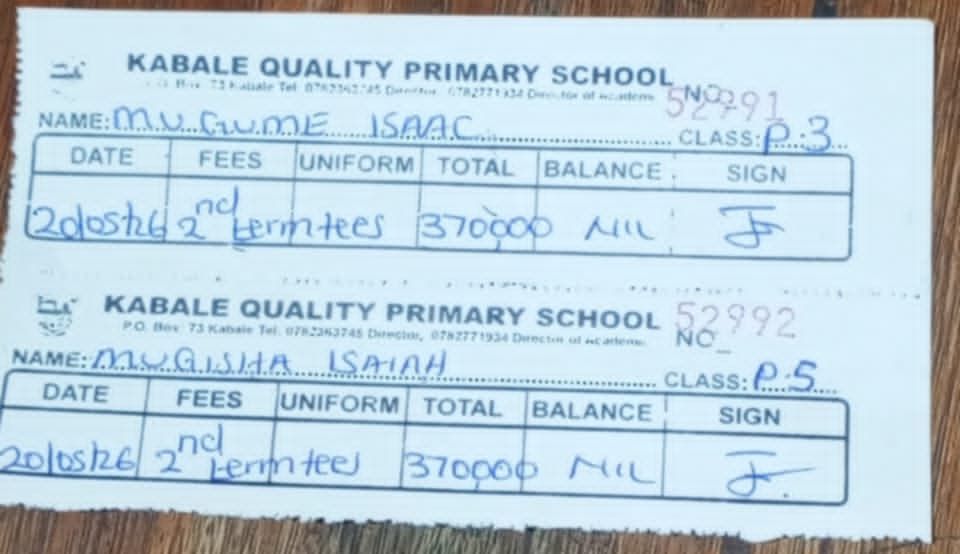 KABALE QUALITY PRIMARY SCHOOL
P.O. Box 73 Kabale Tel 0782363745 Director, 0782771934 Director of Academ
NO 52991
NAME: MUGUME ISAAC CLASS: P.3
DATE FEES UNIFORM TOTAL BALANCE SIGN
20/05/26 2nd term fees 370,000 NIL
KABALE QUALITY PRIMARY SCHOOL
P.O. Box 73 Kabale Tel: 0782363745 Director, 0782771934 Director of Academ
NO 52992
NAME: MUGISHA ISAIAH CLASS: P.5
DATE FEES UNIFORM TOTAL BALANCE SIGN
20/05/26 2nd term fees 370,000 NIL